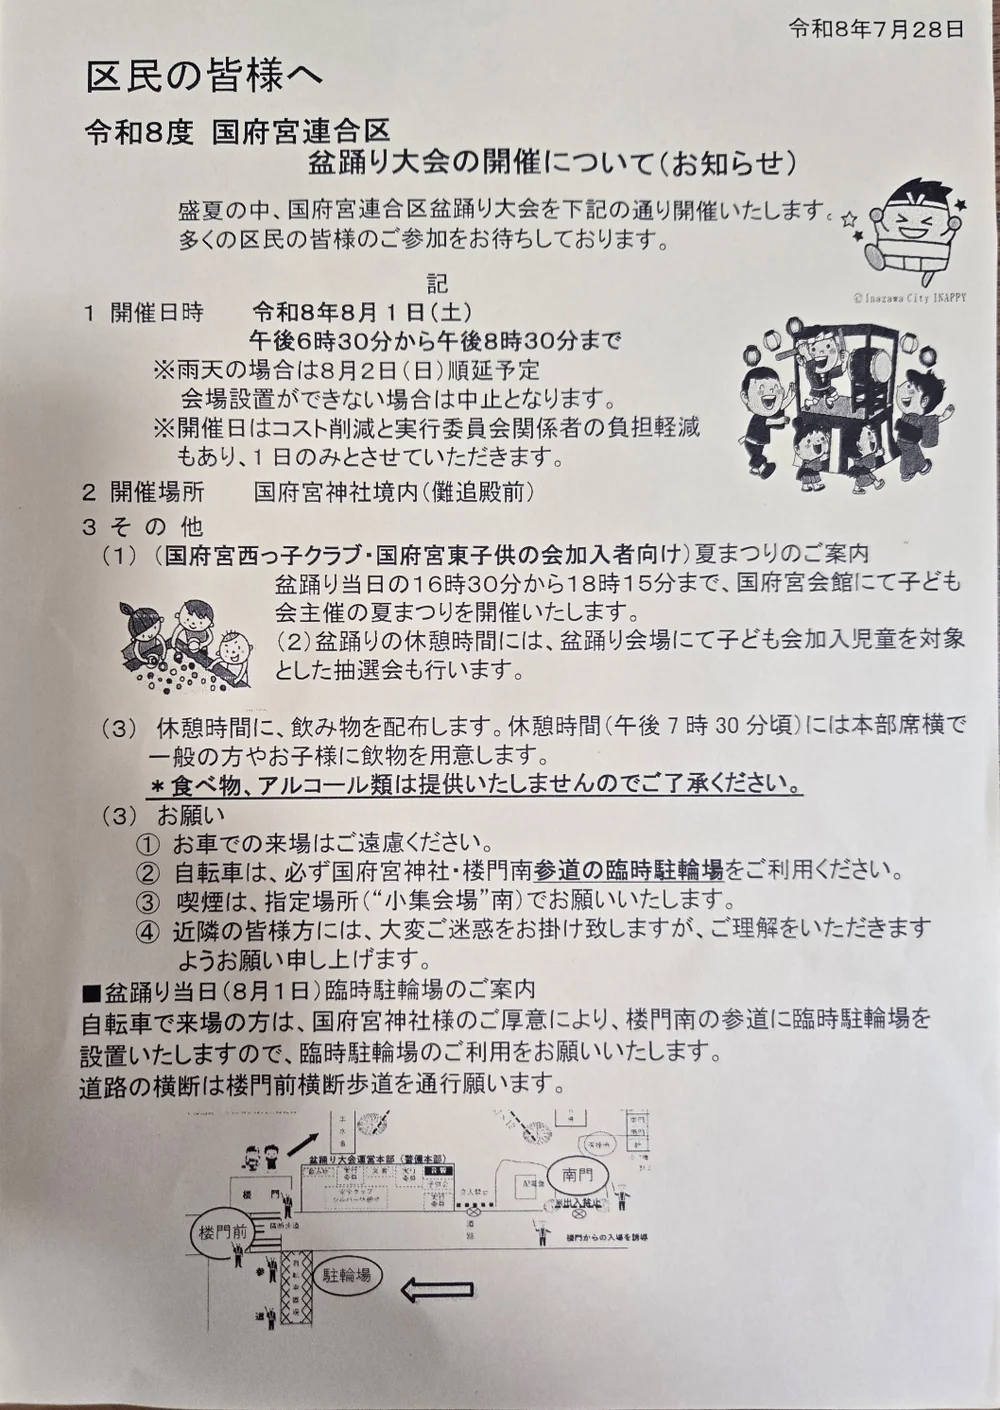 令和8年7月28日
区民の皆様へ
令和8度 国府宮連合区
盆踊り大会の開催について（お知らせ）
盛夏の中、国府宮連合区盆踊り大会を下記の通り開催いたします。
多くの区民の皆様のご参加をお待ちしております。
©Inazawa City INAPPY
記
1 開催日時 令和8年8月1日（土）
午後6時30分から午後8時30分まで
※雨天の場合は8月2日（日）順延予定
会場設置ができない場合は中止となります。
※開催日はコスト削減と実行委員会関係者の負担軽減
もあり、1日のみとさせていただきます。
2 開催場所 国府宮神社境内（儺追殿前）
3 そ の 他
（1）（国府宮西っ子クラブ・国府宮東子供の会加入者向け）夏まつりのご案内
盆踊り当日の16時30分から18時15分まで、国府宮会館にて子ども
会主催の夏まつりを開催いたします。
（2）盆踊りの休憩時間には、盆踊り会場にて子ども会加入児童を対象
とした抽選会も行います。
（3） 休憩時間に、飲み物を配布します。休憩時間（午後 7 時 30 分頃）には本部席横で
一般の方やお子様に飲物を用意します。
＊食べ物、アルコール類は提供いたしませんのでご了承ください。
（3） お願い
① お車での来場はご遠慮ください。
② 自転車は、必ず国府宮神社・楼門南参道の臨時駐輪場をご利用ください。
③ 喫煙は、指定場所（“小集会場”南）でお願いいたします。
④ 近隣の皆様方には、大変ご迷惑をお掛け致しますが、ご理解をいただきます
ようお願い申し上げます。
■盆踊り当日（8月1日）臨時駐輪場のご案内
自転車で来場の方は、国府宮神社様のご厚意により、楼門南の参道に臨時駐輪場を
設置いたしますので、臨時駐輪場のご利用をお願いいたします。
道路の横断は楼門前横断歩道を通行願います。
盆踊り大会運営本部（警備本部）
南門
楼 門
立入禁止
出入禁止
楼門前
横断歩道
道
路
楼門からの入場を誘導
参
道
駐輪場